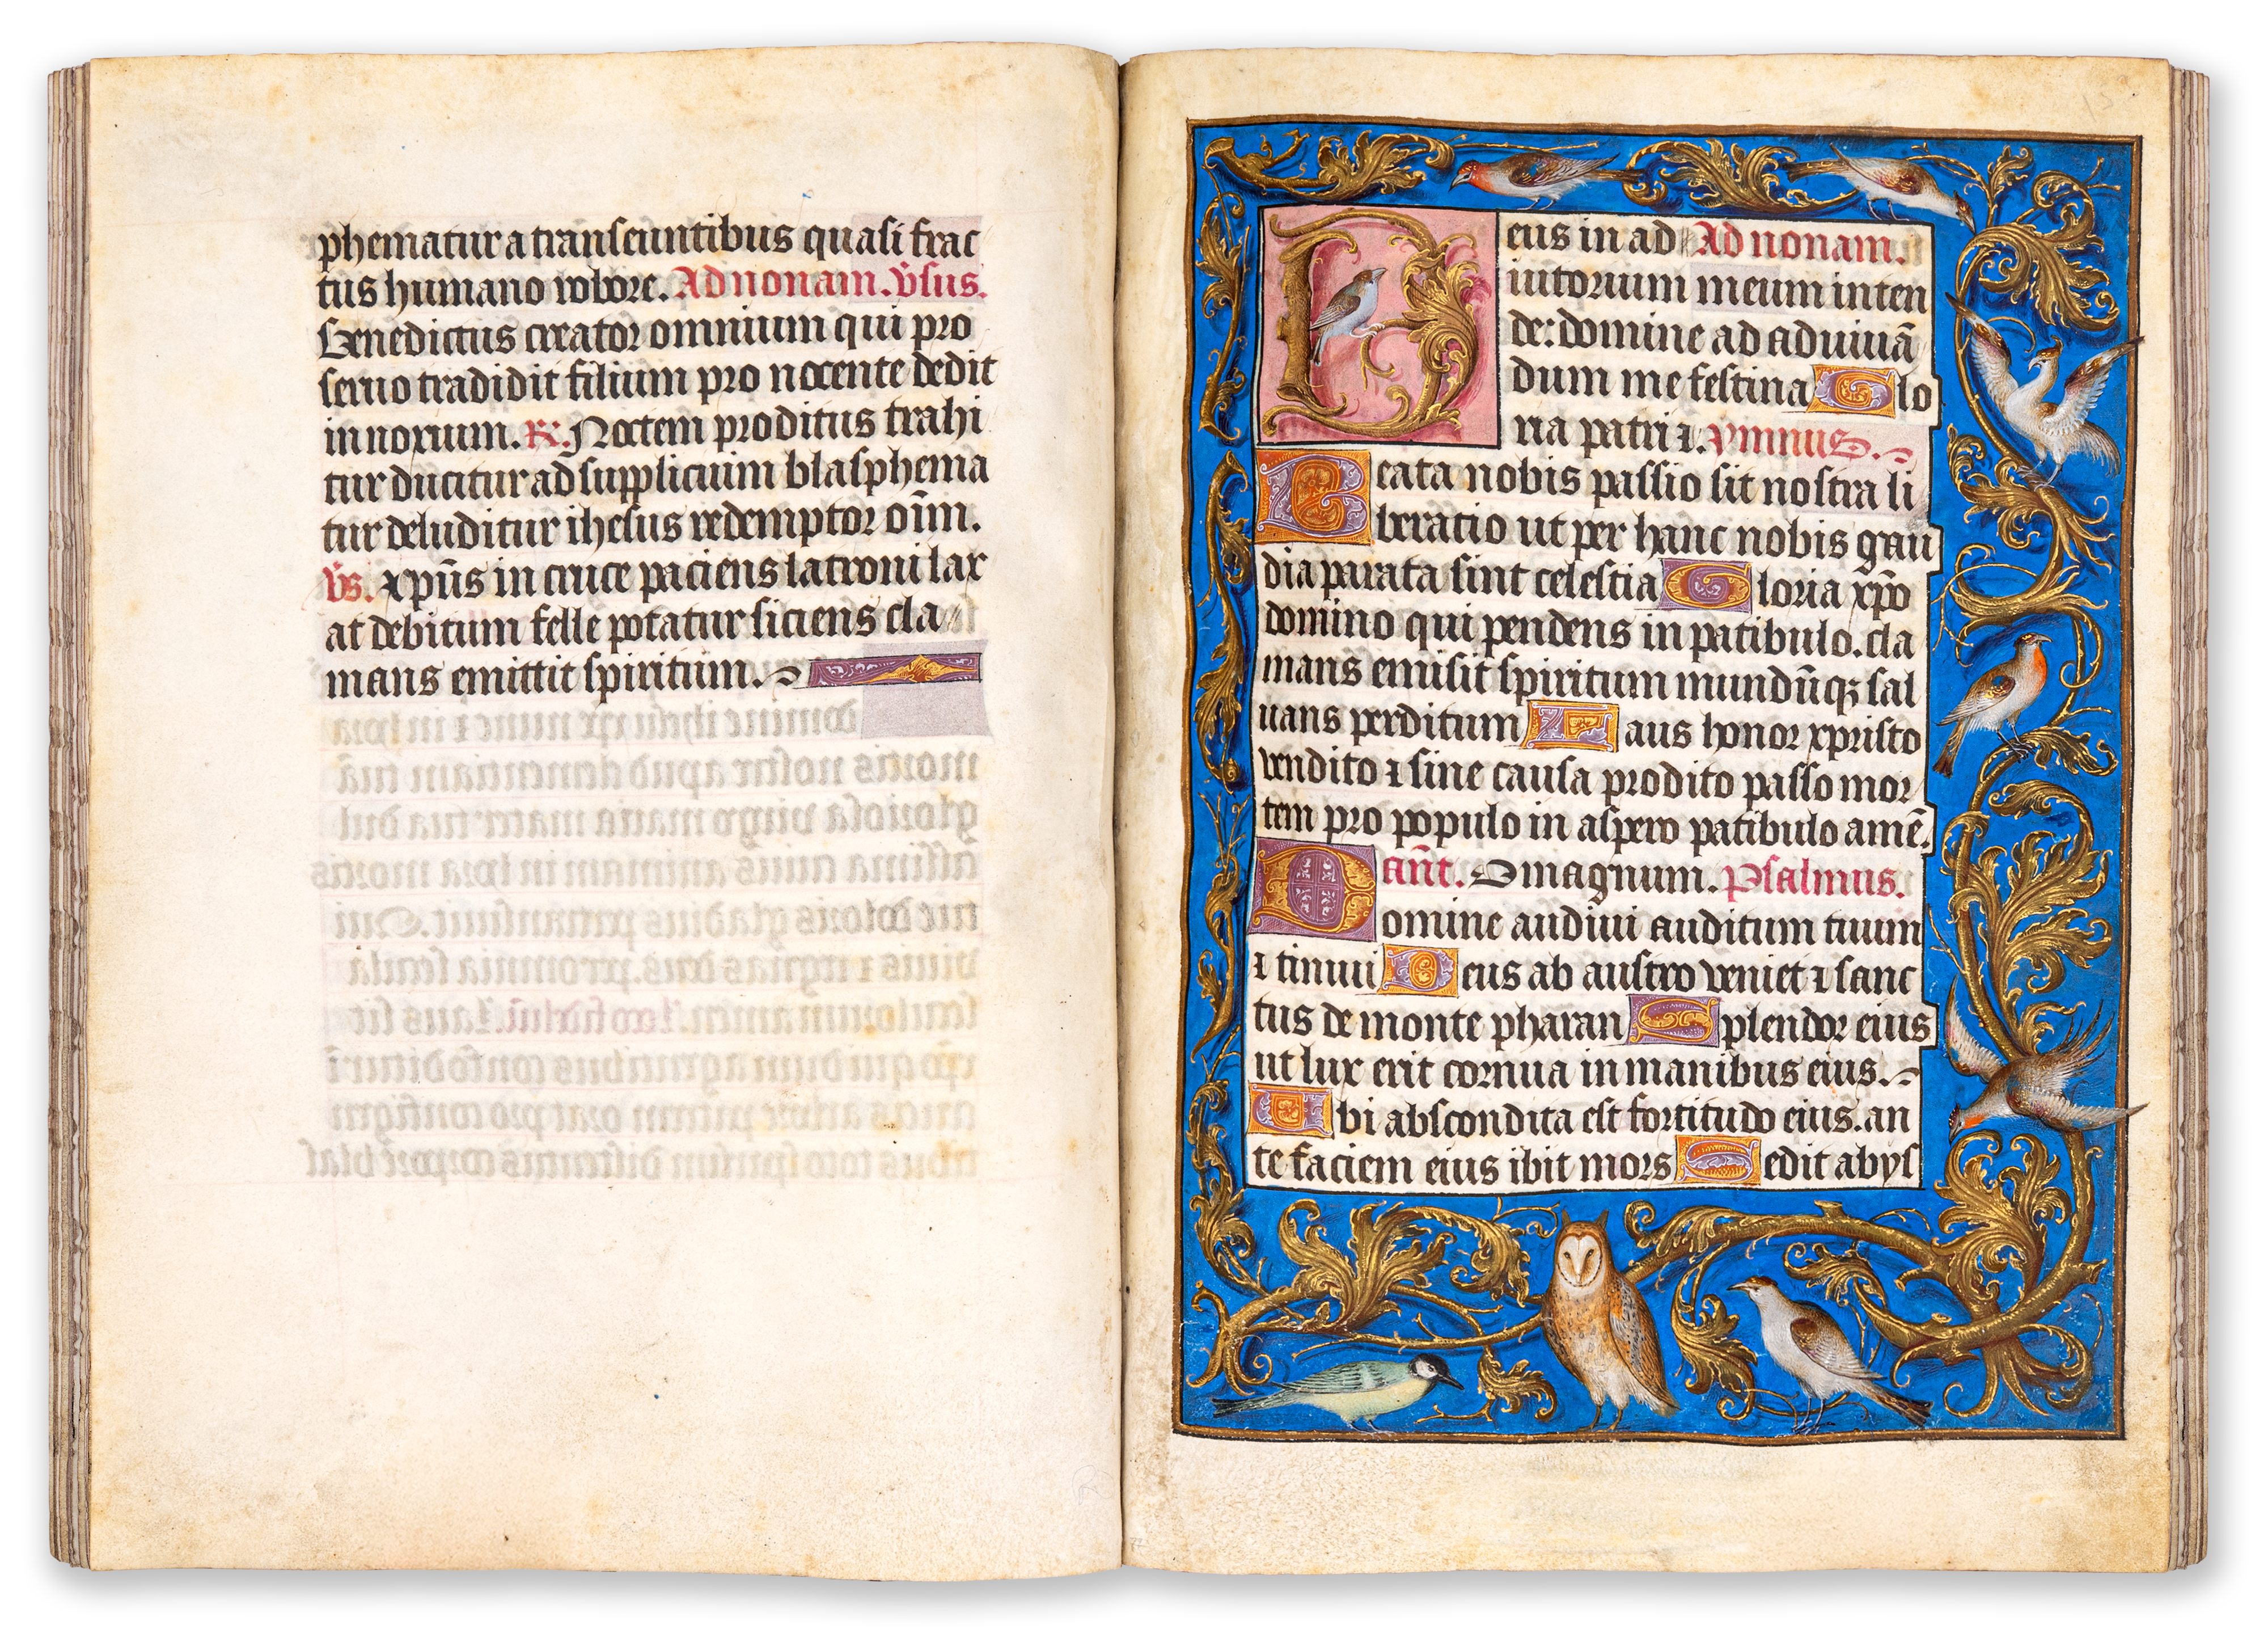 phematur a transeuntibus quasi frac
tus humano robore. Ad nonam. v̄sus.
Benedictus creator omnium qui pro
seruo tradidit filium pro nocente dedit
innoxium. R̄. Noctem proditus trahi
tur ducitur ad supplicium blasphema
tur deluditur ihesus redemptor oīm.
v̄s. xp̄us in cruce paciens latroni lax
at debitum felle potatur siciens cla
mans emittit spiritum.
Deus in ad Ad nonam.
iutorium meum inten
de: domine ad adiuuā
dum me festina Glo
ria patri ⁊. ymnus.
Beata nobis passio sit nostra li
beratio ut per hanc nobis gau
dia parata sint celestia Gloria xp̄o
domino qui pendens in patibulo. cla
mans emisit spiritum mundūqꝫ sal
uans perditum Laus honor xpristo
vendito ⁊ sine causa prodito passo mor
tem pro populo in aspero patibulo amē.
an̄t. O magnum. Psalmus.
Domine audiui auditum tuum
⁊ timui Deus ab austro veniet ⁊ sanc
tus de monte pharan Splendor eius
ut lux erit cornua in manibus eius.
Ibi abscondita est fortitudo eius. an
te faciem eius ibit mors Egredit abys